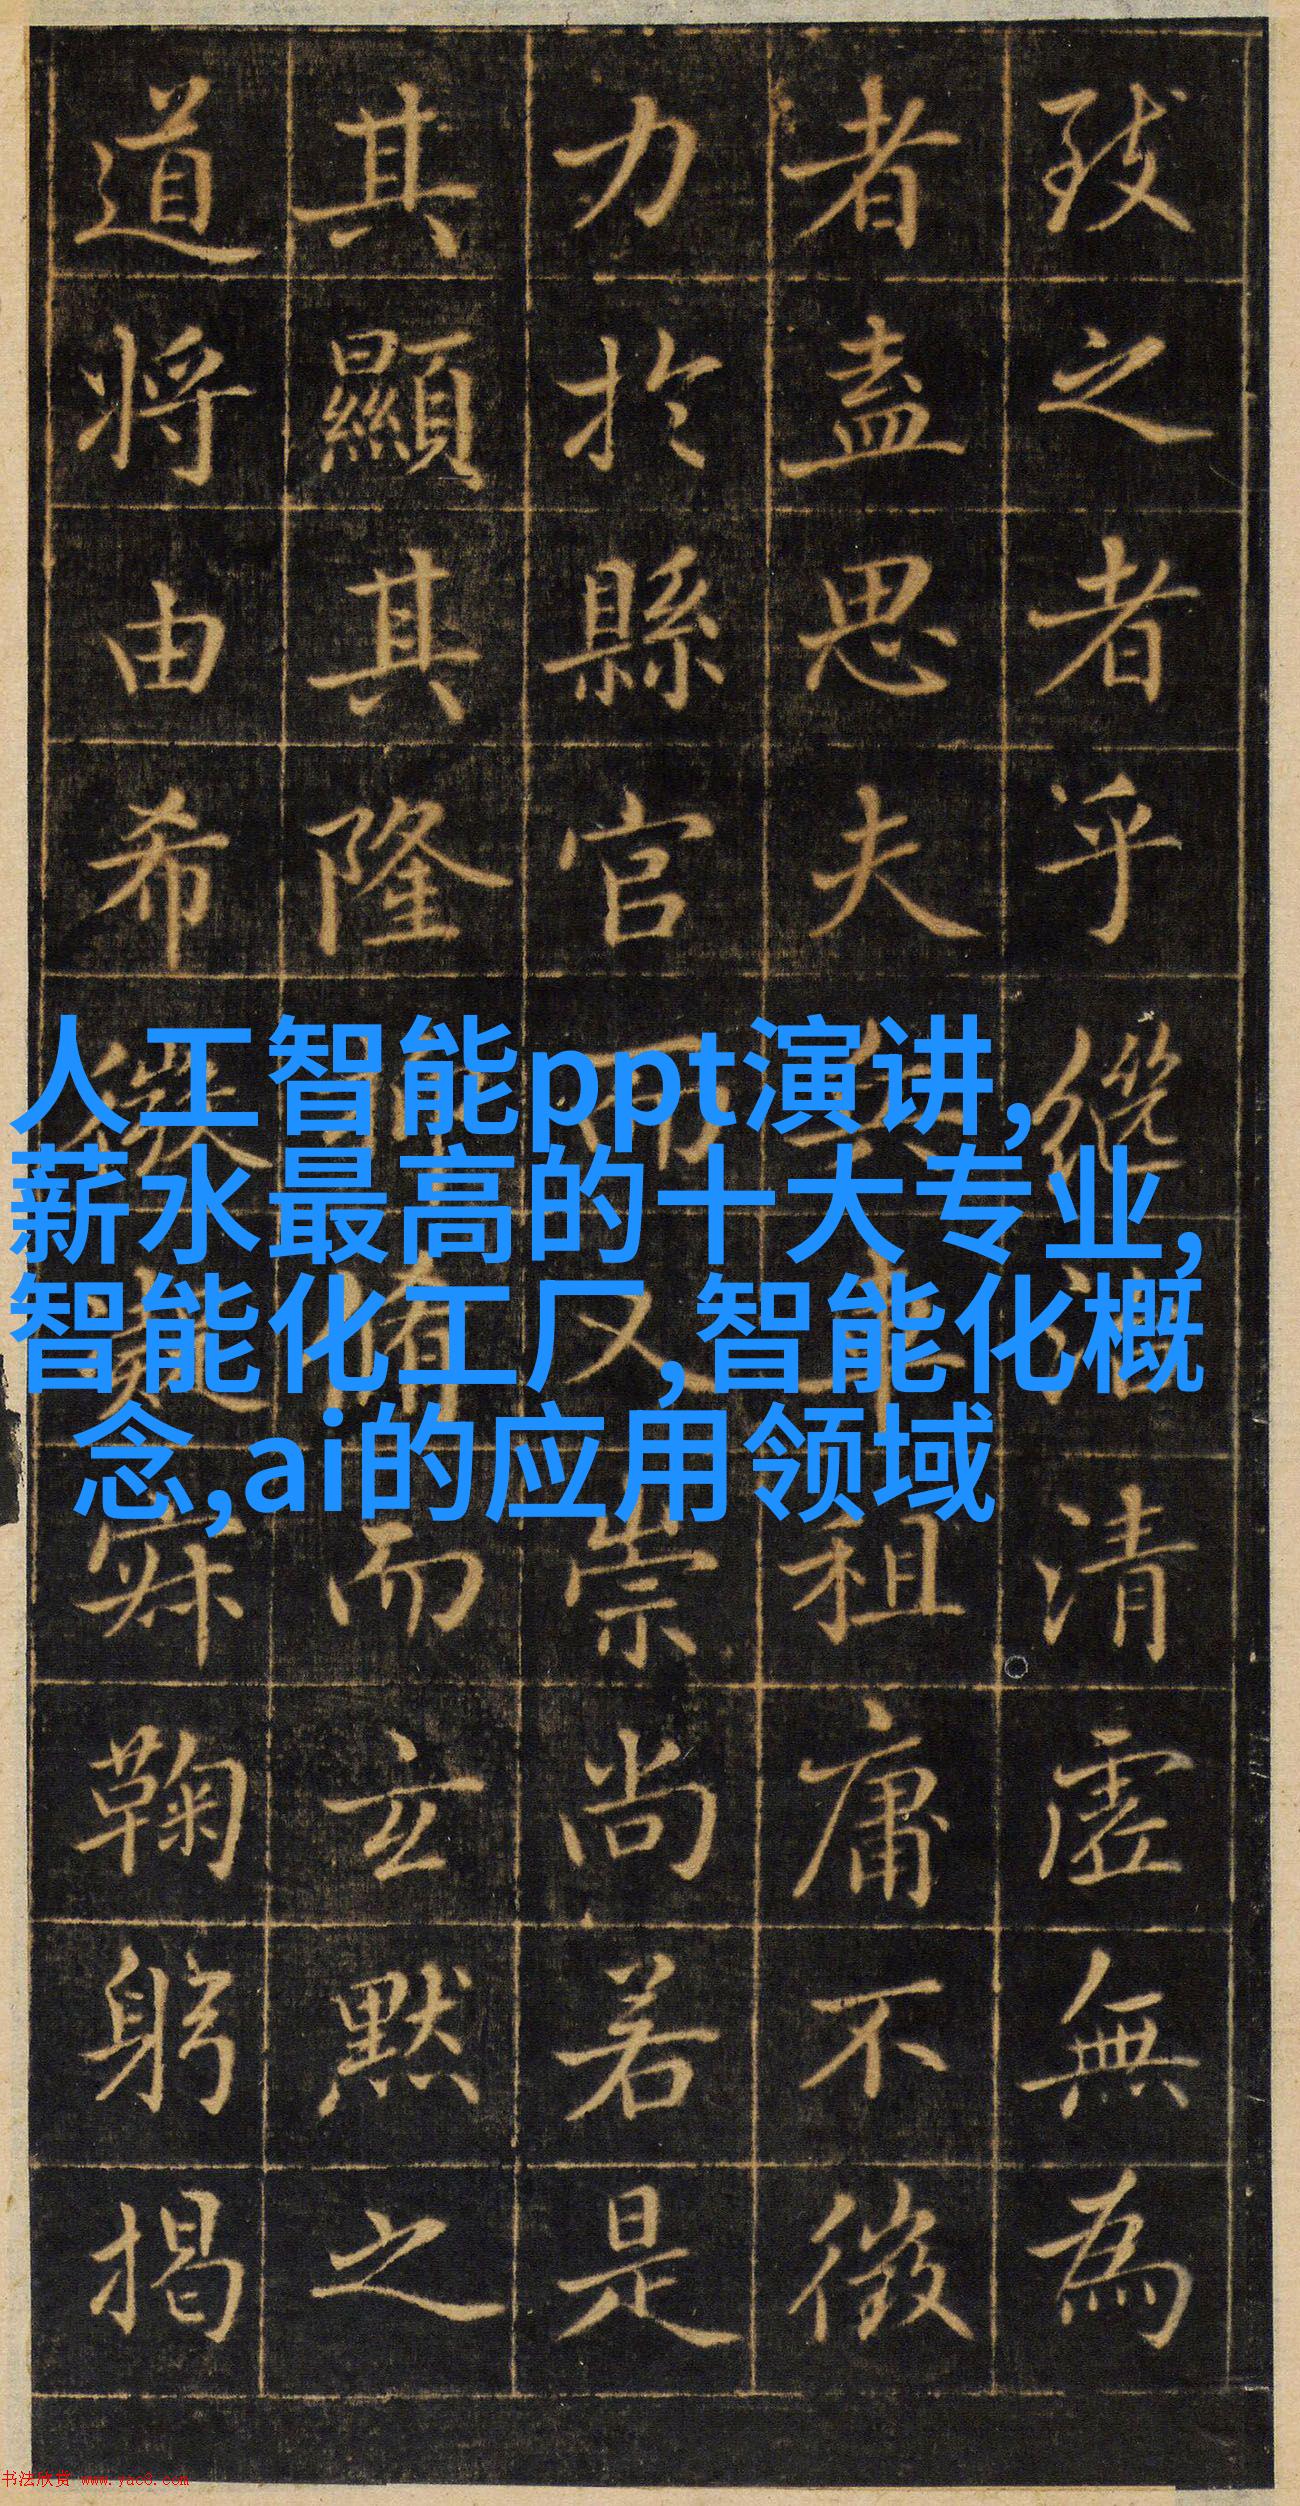 致之者乎清虛無為
者盡思夫租庸不徵
力於縣官而又崇尚若是
其顯其隆而玄默之
道將由希寂鞠躬揭
人工智能ppt演讲,
薪水最高的十大专业,
智能化工厂,智能化概
念,ai的应用领域
书法欣赏 www.yac8.com